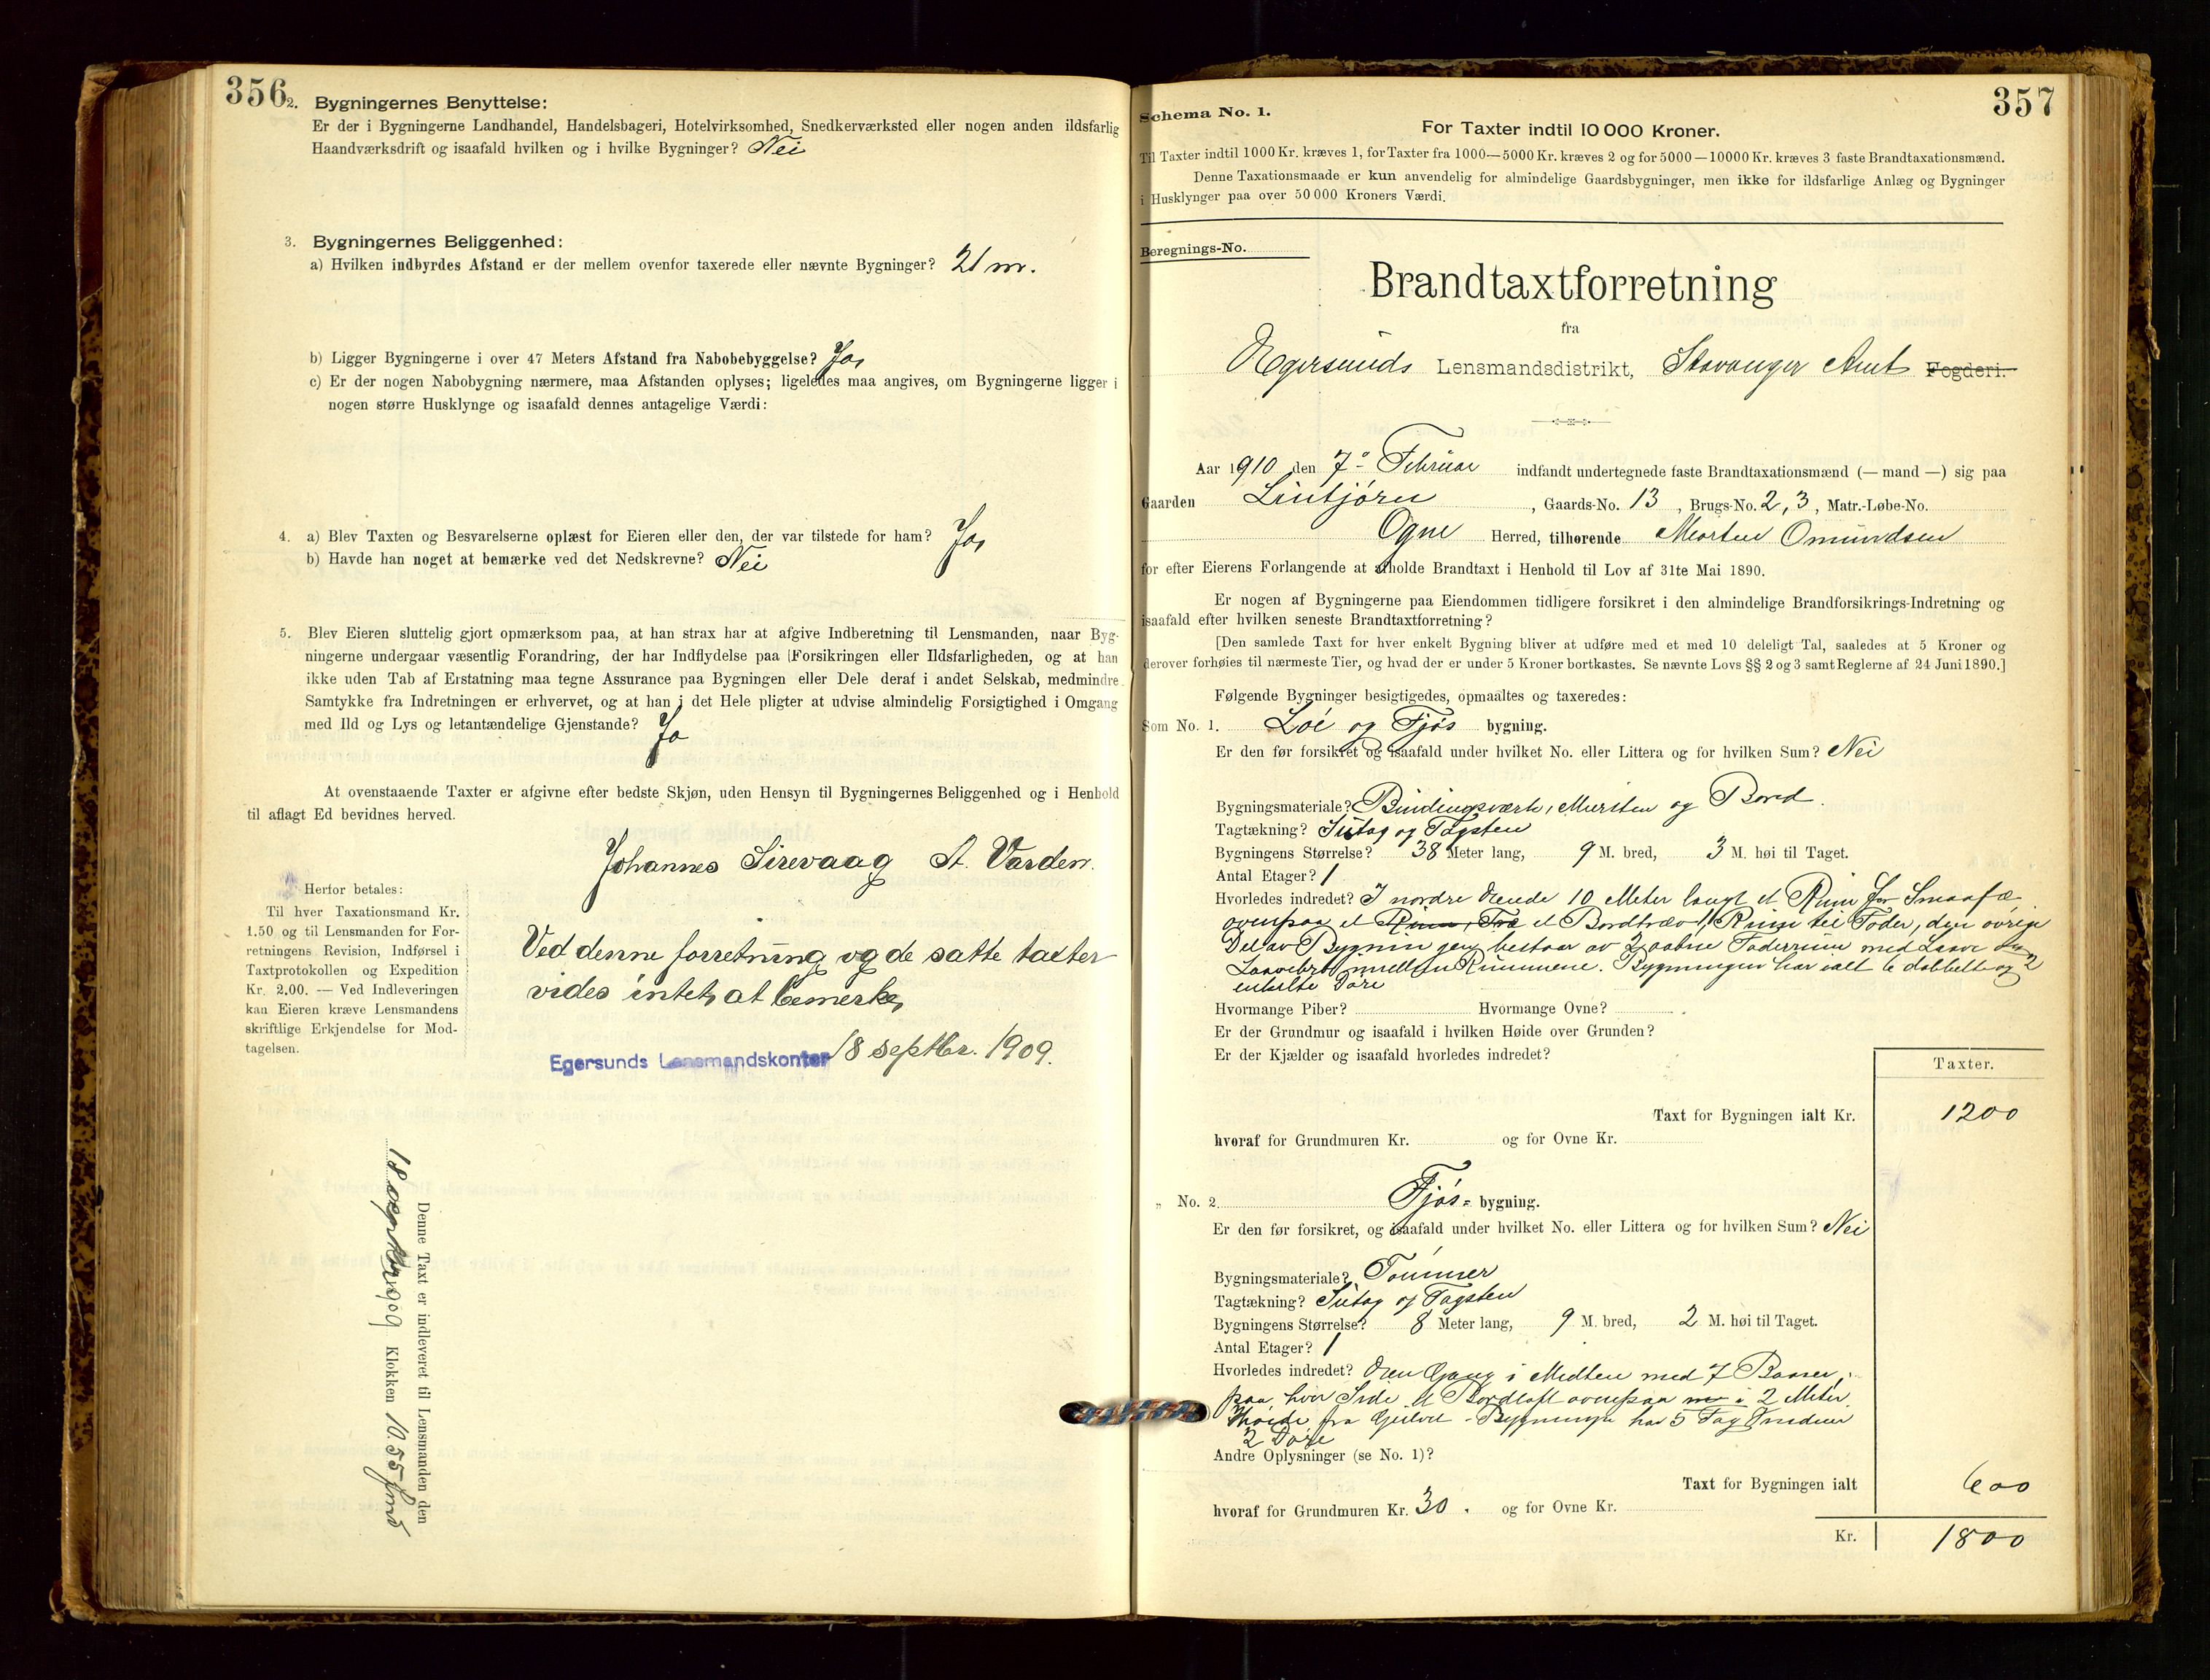 356
2. Bygningernes Benyttelse:
Er der i Bygningerne Landhandel, Handelsbageri, Hotelvirksomhed, Snedkerværksted eller nogen anden ildsfarlig
Haandværksdrift og isaafald hvilken og i hvilke Bygninger? Nei
3. Bygningernes Beliggenhed:
a) Hvilken indbyrdes Afstand er der mellem ovenfor taxerede eller nævnte Bygninger? 21 m.
b) Ligger Bygningerne i over 47 Meters Afstand fra Nabobebyggelse? Ja
c) Er der nogen Nabobygning nærmere, maa Afstanden oplyses; ligeledes maa angives, om Bygningerne ligger i
nogen større Husklynge og isaafald dennes antagelige Værdi:
4. a) Blev Taxten og Besvarelserne oplæst for Eieren eller den, der var tilstede for ham? Ja
b) Havde han noget at bemærke ved det Nedskrevne? Nei
5. Blev Eieren sluttelig gjort opmærksom paa, at han strax har at afgive Indberetning til Lensmanden, naar Byg-
ningerne undergaar væsentlig Forandring, der har Indflydelse paa Forsikringen eller Ildsfarligheden, og at han
ikke uden Tab af Erstatning maa tegne Assurance paa Bygningen eller Dele deraf i andet Selskab, medmindre
Samtykke fra Indretningen er erhvervet, og at han i det Hele pligter at udvise almindelig Forsigtighed i Omgang
med Ild og Lys og letantændelige Gjenstande? Ja
At ovenstaaende Taxter er afgivne efter bedste Skjøn, uden Hensyn til Bygningernes Beliggenhed og i Henhold
til aflagt Ed bevidnes herved.
Johannes Sirevaag A. Varden.
Herfor betales:
Til hver Taxationsmand Kr.
1.50 og til Lensmanden for For-
retningens Revision, Indførsel i
Taxtprotokollen og Expedition
Kr. 2.00. — Ved Indleveringen
kan Eieren kræve Lensmandens
skriftlige Erkjendelse for Mod-
tagelsen.
Ved denne forretning og de satte taxter
vides intet at bemerke,
Egersunds Lensmandskontor 18 septbr. 1909.
Denne Taxt er indleveret til Lensmanden den
18 septbr 1909 Klokken 10.55 fmd
357
Schema No. 1.
For Taxter indtil 10 000 Kroner.
Til Taxter indtil 1000 Kr. kræves 1, for Taxter fra 1000—5000 Kr. kræves 2 og for 5000—10000 Kr. kræves 3 faste Brandtaxationsmænd.
Denne Taxationsmaade er kun anvendelig for almindelige Gaardsbygninger, men ikke for ildsfarlige Anlæg og Bygninger
i Husklynger paa over 50 000 Kroners Værdi.
Beregnings-No.
Brandtaxtforretning
fra
Egersunds Lensmandsdistrikt, Stavanger Amt Fogderi.
Aar 1910 den 7de Februar indfandt undertegnede faste Brandtaxationsmænd (— mand —) sig paa
Gaarden Lintjørn, Gaards-No. 13, Brugs-No. 2, 3, Matr.-Løbe-No.
Ogne Herred, tilhørende Morten Omundsen
for efter Eierens Forlangende at afholde Brandtaxt i Henhold til Lov af 31te Mai 1890.
Er nogen af Bygningerne paa Eiendommen tidligere forsikret i den almindelige Brandforsikrings-Indretning og
isaafald efter hvilken seneste Brandtaxtforretning?
[Den samlede Taxt for hver enkelt Bygning bliver at udføre med et med 10 deleligt Tal, saaledes at 5 Kroner og
derover forhøies til nærmeste Tier, og hvad der er under 5 Kroner bortkastes. Se nævnte Lovs §§ 2 og 3 samt Reglerne af 24 Juni 1890.]
Følgende Bygninger besigtigedes, opmaaltes og taxeredes:
Som No. 1. Løe og Fjøs bygning.
Er den før forsikret og isaafald under hvilket No. eller Littera og for hvilken Sum? Nei
Bygningsmateriale? Bindingsværk, Mursten og Bord.
Tagtækning? Sutag og Tagsten
Bygningens Størrelse? 38 Meter lang, 9 M. bred, 3 M. høi til Taget.
Antal Etager? 1
Hvorledes indredet? I nordre Ænde 10 Meter langt et Rum for Smaafæ
ovenpaa et Rum, et Bordtræv 1 Rum til Foder, den øvrige
Del av Bygningen bestaar av 2 aabne Foderrum med Laave og
Laavebrl mellem Rummene. Bygningen har ialt 6 dobbelte og 2
enkelte Døre
Hvormange Piber? Hvormange Ovne?
Er der Grundmur og isaafald i hvilken Høide over Grunden?
Er der Kjælder og isaafald hvorledes indredet?
Taxter.
Taxt for Bygningen ialt Kr. 1200
hvoraf for Grundmuren Kr. og for Ovne Kr.
„ No. 2. Fjøs- bygning.
Er den før forsikret, og isaafald under hvilket No. eller Littera og for hvilken Sum? Nei
Bygningsmateriale? Tømmer
Tagtækning? Sutag og Tagsten
Bygningens Størrelse? 8 Meter lang, 9 M. bred, 2 M. høi til Taget.
Antal Etager? 1
Hvorledes indredet? Gang i Midten med 7 Baaser
paa hver Side et Bordloft ovenpaa i 2 Meter
Høide fra Gulvet - Bygningen har 5 Fag Vinduer
2 Døre
Andre Oplysninger (se No. 1)?
Taxt for Bygningen ialt 600
hvoraf for Grundmuren Kr. 30. og for Ovne Kr.
Kr. 1800